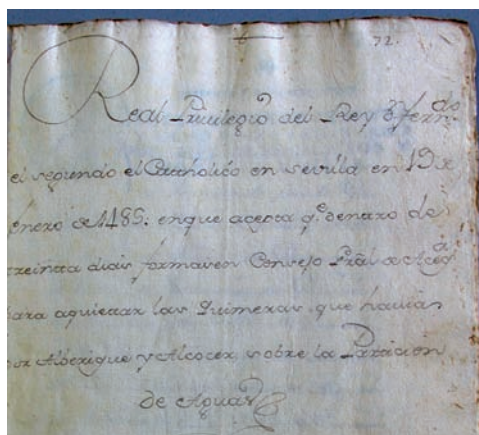 72.
Real Privilegio del Rey Dn Ferndo
el segundo el Catholico en sevilla en 19 de
Enero de 1485: en que acepta qe. dentro de
treinta dias formasen Consejo Pral de
para aquietar las Quimeras, que havian
por Alberique y Alcocer, sobre la Particion
de Aguas